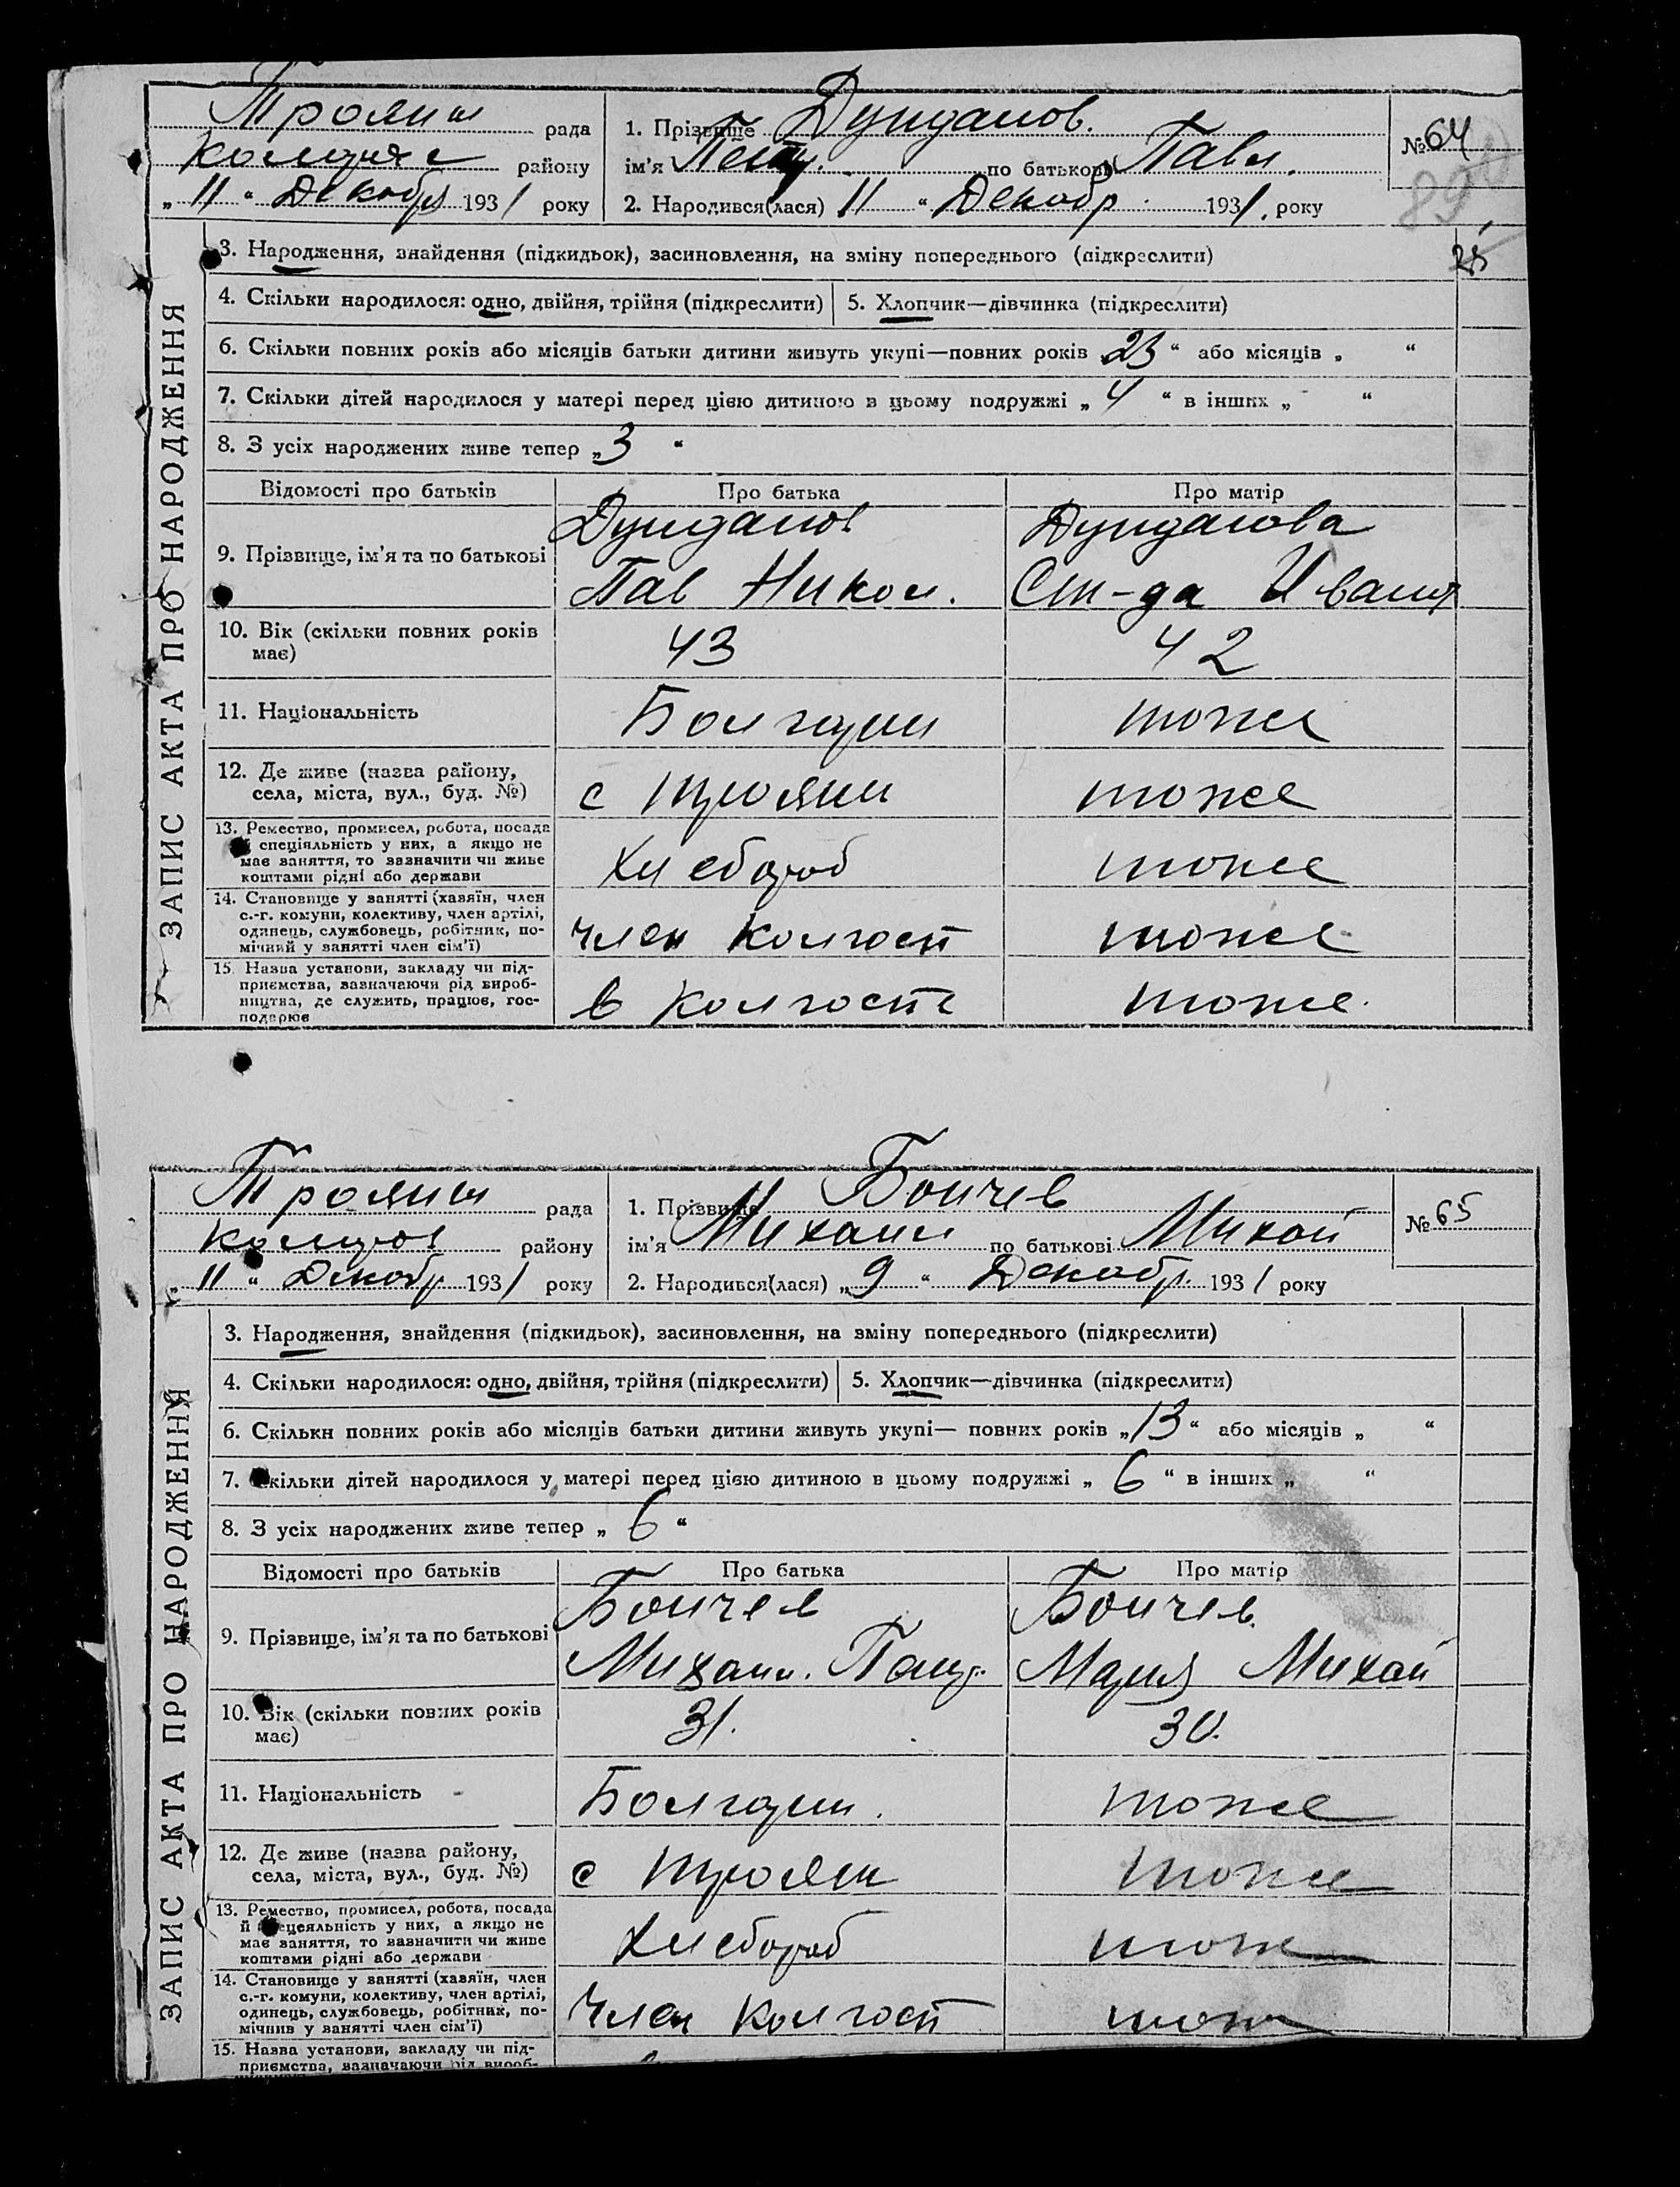 Троян рада 1. Прізвище Дунданов. №64
района району ім'я Петр. по батькові Павл.
„ 11 “ Декабря 1931 року 2. Народився(лася) 11 “ Декабр 1931. року
25
ЗАПИС АКТА ПРО НАРОДЖЕННЯ
3. Народження, знайдення (підкидьок), засиновлення, на зміну попереднього (підкреслити)
4. Скільки народилося: одно, двійня, трійня (підкреслити) 5. Хлопчик—дівчинка (підкреслити)
6. Скільки повних років або місяців батьки дитини живуть укупі—повних років 23 “ або місяців „ “
7. Скільки дітей народилося у матері перед цією дитиною в цьому подружжі „ 4 “ в інших „ “
8. З усіх народжених живе тепер „ 3 “
Відомості про батьків Про батька Про матір
Дунданов Дунданова
9. Прізвище, ім'я та по батькові
Пав Никол. Ст-да Иван
10. Вік (скільки повних років має) 43 42
11. Національність Болгарин тоже
12. Де живе (назва району, села, міста, вул., буд. №) с Трояни тоже
13. Ремество, промисел, робота, посада й спеціяльність у них, а якщо не має заняття, то зазначити чи живе коштами рідні або держави Хлебороб тоже
14. Становище у занятті (хазяїн, член с.-г. комуни, колективу, член артілі, одинець, службовець, робітник, помічний у занятті член сім'ї) член колхост тоже
15. Назва установи, закладу чи підприємства, зазначаючи рід виробництва, де служить, працює, господарює в колхосте тоже.
Троян рада 1. Прізвище Бончев №65
району ім'я Михаил по батькові Михай
„ 11 “ Декабр 1931 року 2. Народився(лася) „ 9 “ Декабр 1931 року
ЗАПИС АКТА ПРО НАРОДЖЕННЯ
3. Народження, знайдення (підкидьок), засиновлення, на зміну попереднього (підкреслити)
4. Скільки народилося: одно, двійня, трійня (підкреслити) 5. Хлопчик—дівчинка (підкреслити)
6. Скільки повних років або місяців батьки дитини живуть укупі— повних років „ 13 “ або місяців „ “
7. Скільки дітей народилося у матері перед цією дитиною в цьому подружжі „ 6 “ в інших „ “
8. З усіх народжених живе тепер „ 6 “
Відомості про батьків Про батька Про матір
Бончев Бончев.
9. Прізвище, ім'я та по батькові
Михаил. Мария Михай
10. Вік (скільки повних років має) 31. 30.
11. Національність Болгарин. тоже
12. Де живе (назва району, села, міста, вул., буд. №) с Трояни тоже
13. Ремество, промисел, робота, посада й спецеяльність у них, а якщо не має заняття, то зазначити чи живе коштами рідні або держави Хлебороб тоже
14. Становище у занятті (хазяїн, член с.-г. комуни, колективу, член артілі, одинець, службовець, робітник, помічнив у занятті член сім'ї) Член колхост тоже
15. Назва установи, закладу чи підприємства, зазначаючи рід вироб-